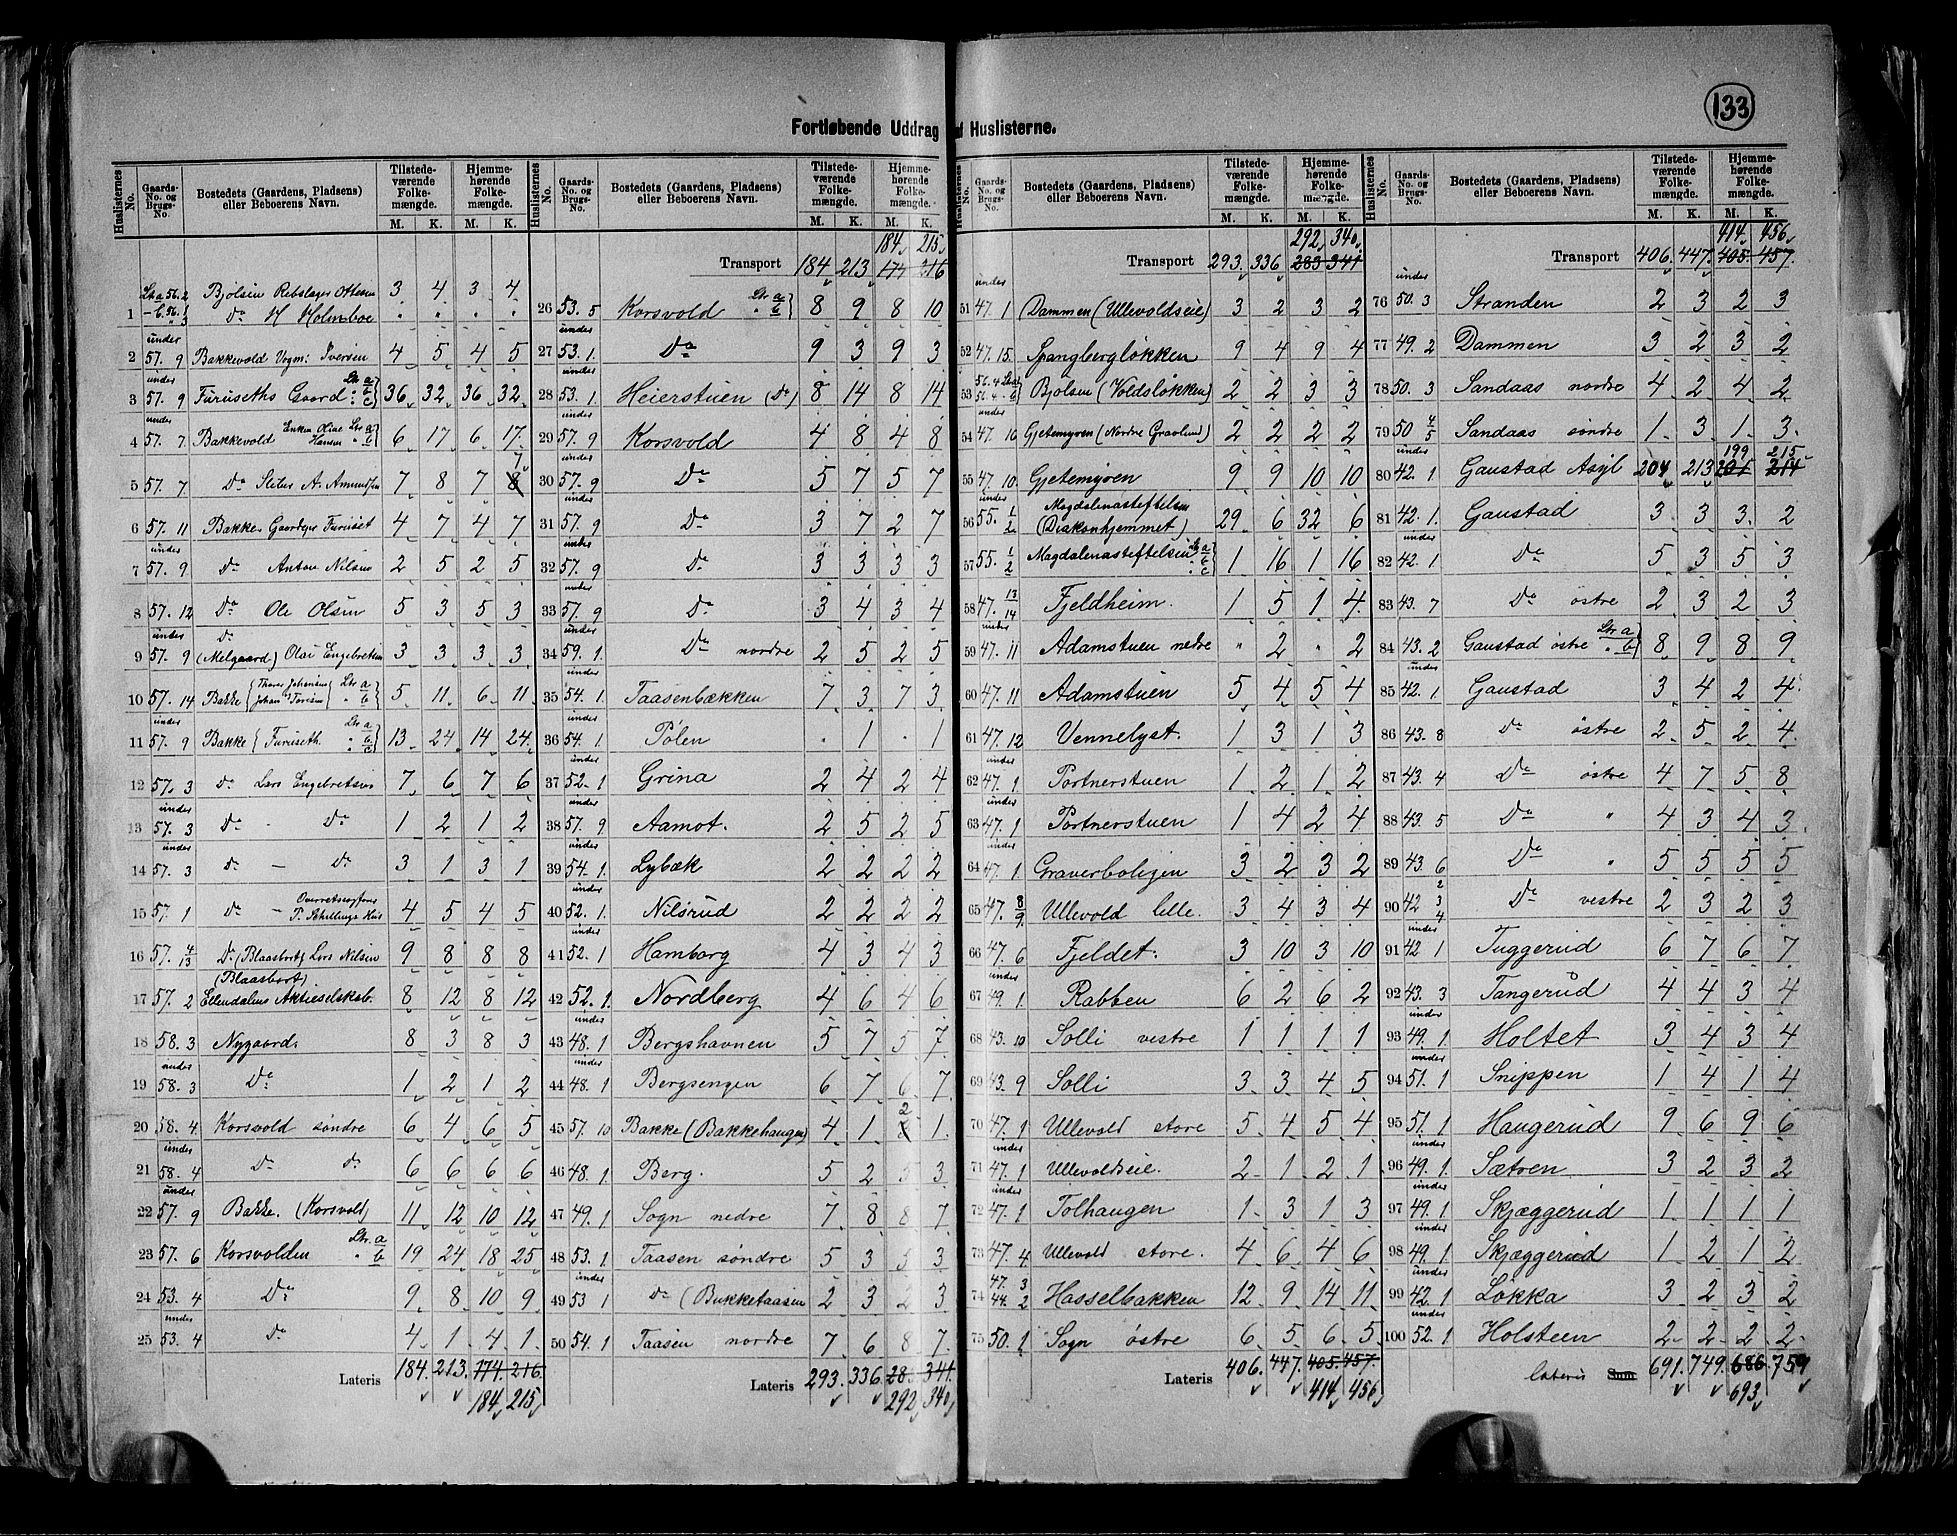 133
Fortløbende Uddrag af Huslisterne.
Huslisternes No. | Gaards-No. og Brugs-No. | Bostedets (Gaardens, Pladsens) eller Beboerens Navn. | Tilstedeværende Folkemængde. M. K. | Hjemmehørende Folkemængde. M. K.
1 Ltr a 56.2 Bjølsen Rebslager Ottesen 3 4 3 4
Do H Holmboe " " " "
2 under 57. 9 Bakkevold Vogm: Iversen 4 5 4 5
3 under 57. 9 Furuseths Gaard Ltr a b c 36 32 36 32
4 under 57. 7 Bakkevold Enken Oline Hansen Ltr a b 6 17 6 17
5 under 57. 7 Do 7 8 7 8 7
6 57. 11 Bakke Furuset 4 7 4 7
7 under 57. 9 Do Anton Nilsen 2 5 2 5
8 57. 12 Do Ole Olsen 5 3 5 3
9 under 57. 9 Do (Melgaard) Olai Engebretsen 3 3 3 3
10 57. 14 Bakke Ltr a b 5 11 6 11
11 under 57. 9 Bakke Furuseth. Ltr a b c 13 24 14 24
12 57. 3 Do Lars Engebretsen 7 6 7 6
13 under 57. 3 Do - Do 1 2 1 2
14 under 57. 3 Do - Do 3 1 3 1
15 57. 1 Do - P. Schellings Hus 4 5 4 5
16 57. 4/13 Do (Blaasbort) Lars Nilsen 9 8 8 8
17 57. 2 (Blaasbort) Ellendalens Aktieselskab. 8 12 8 12
18 58. 3 Nygaard. 8 3 8 3
19 under 58. 3 Do 1 2 1 2
20 58. 4 Korsvold søndre 6 4 6 5
21 under 58. 4 Do do 6 6 6 6
22 under 57. 9 Bakke. (Korsvold) 11 12 10 12
23 57. 6 Korsvolden Ltr. a b 19 24 18 25
24 53. 4 Do 9 8 10 9
25 under 53. 4 Do 4 1 4 1
Lateris 184. 213. 174. 216.
184 215
184 215
Transport 184 213 177 216
26 53. 5 Korsvold Ltr a b 8 9 8 10
27 under 53. 1. Do 9 3 9 3
28 under 53. 1 Heierstuen (Do) 8 14 8 14
29 under 57. 9 Korsvold 4 8 4 8
30 under 57. 9 Do 5 7 5 7
31 under 57. 9 Do 3 7 2 7
32 under 57. 9 Do 3 3 3 3
33 under 57. 9 Do 3 4 3 4
34 under 59. 1. Do nordre 2 5 2 5
35 under 54. 1. Taasenbækken 7 3 7 3
36 under 54. 1. Pølen . 1 . 1
37 52. 1 Grina 2 4 2 4
38 under 57. 9 Aamot. 2 5 2 5
39 under 54. 1. Lybæk 2 2 2 2
40 under 52. 1. Nilsrud 2 2 2 2
41 under 52. 1 Hamborg 4 3 4 3
42 52. 1. Nordberg 4 6 4 6
43 under 48. 1 Bergshavnen 5 7 5 7
44 under 48. 1 Bergsengen 6 7 6 7
45 57. 10 Bakke (Bakkehaugen) 4 1 2 1
46 48. 1 Berg. 5 2 5 3
47 49. 1 Sogn nedre 7 8 8 7
48 53. 1 Taasen søndre 5 3 5 3
49 under 53 1 Do (Bukketaasen 2 3 2 3
50 54. 1 Taasen nordre 7 6 8 7
Lateris 293. 336. 281. 341.
292 340
292 340
Transport 293 336 283 341
51 under 47. 1 Dammen (Ullevoldseie) 3 2 3 2
52 47. 15. Spangbergløkken 9 4 9 4
53 Bjølsen (Voldsløkken) 2 2 3 3
54 under 47. 10 Gjetemyren (Nordre Gravlund) 2 2 2 2
55 47. 10. Gjetemyren 9 9 10 10
56 under 55. 1/2 Magdalenastiftelsen (Diakonhjemmet) 29 6 32 6
57 55. 1/2 Magdalenastiftelsen Ltr a b c 1 16 1 16
58 47. 13/14 Fjeldheim. 1 5 1 4
59 under 47. 11 Adamstuen nedre " 2 " 2
60 47. 11 Adamstuen 5 4 5 4
61 47. 12 Vennelyst. 1 3 1 3
62 47. 1. Portnerstuen 1 2 1 2
63 under 47. 1 Portnerstuen 1 4 2 4
64 under 47. 1 Graverboligen 3 2 3 2
65 47. 8/9 Ullevold lille. 3 4 3 4
66 47. 6 Fjeldet. 3 10 3 10
67 under 49. 1. Rabben 6 2 6 2
68 43. 10 Solli vestre 1 1 1 1
69 43. 9 Solli 3 3 4 5
70 47. 1 Ullevold store 5 4 5 4
71 under 47. 1 Ullevoldseie. 2 1 2 1
72 under 47. 1 Tolhaugen 1 3 1 3
73 47. 4 Ullevold store. 4 6 4 6
74 47. 3 44. 2 Hasselbakken 12 9 14 11
75 50. 1 Sogn østre 6 5 6 5
Lateris 406. 447. 405. 457.
414 456
414 456
Transport 406. 447. 405. 457.
76 under 50. 3 Stranden 2 3 2 3
77 49. 2 Dammen 3 2 3 2
78 50. 3 Sandaas nordre 4 2 4 2
79 50 4/5 Sandaas søndre 1 3 1 3
80 42. 1 Gaustad Asyl 204 213 201 214 199 215
81 42. 1. Gaustad 3 3 3 2
82 under 42. 1 Do 5 3 5 3
83 43. 7 Do østre 2 3 2 3
84 43. 2 Gaustad østre Ltr a b 8 9 8 9
85 under 42. 1 Gaustad 3 4 2 4
86 43. 8 Do østre 2 5 2 4
87 43. 4 Do østre 4 7 5 8
88 43. 5 Do " 4 3 4 3
89 43. 6 Do " 5 5 5 5
90 42 2 3 4 Do vestre 2 3 2 3
91 under 42. 1 Tuggerud 6 7 6 7
92 43. 3 Tangerud 4 4 3 4
93 under 49. 1. Holtet 3 4 3 4
94 under 51. 1 Snippen 1 4 1 4
95 51. 1 Haugerud 9 6 9 6
96 under 49. 1. Sætren 3 2 3 2
97 under 49. 1 Skjæggerud 1 1 1 1
98 under 49. 1. Skjæggerud 1 2 1 2
99 under 42. 1 Løkka 3 2 3 2
100 under 52. 1 Holsteen 2 2 2 2
lateris Sum 691. 749. 686. 759
693